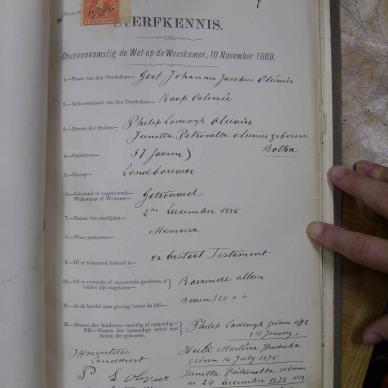 STERFKENNIS.
Overeenkomstig de Wet op de Weeskamer, 10 November 1869.
1.—Naam van den Overledene— Gert Johannes Jacobus Olivier
2.—Geboorteplaats van den Overledene— Kaap Colonie
3.—Namen der Ouders— Philip Lodewyk Olivier
Junetta Petronella Olivier geboren
Botha
4.—Ouderdom— 57 Jaaren
5.—Beroep— Landbouwer
6.—Getrouwd of ongetrouwd, Weduwnaar of Weduwe— Getrouwd
7.—Datum van overlijden— 2de December
8.—Waar gestorven—
9.—Of er testament bekend is— er bestaat Testament
10.—Of er roerende of onroerende goederen of beiden zijn nagelaten— Roerende alleen
11.—Is de boedel naar gissing boven de £25— boven £25
12.—Namen der kinderen—mondig of onmondig— Philip Lodewyk geboren
datum der geboorte. January
Martina Hendrika
geboren 14 July 1875
Junetta Petronella geboren
de 24 December 1878
Landdrost